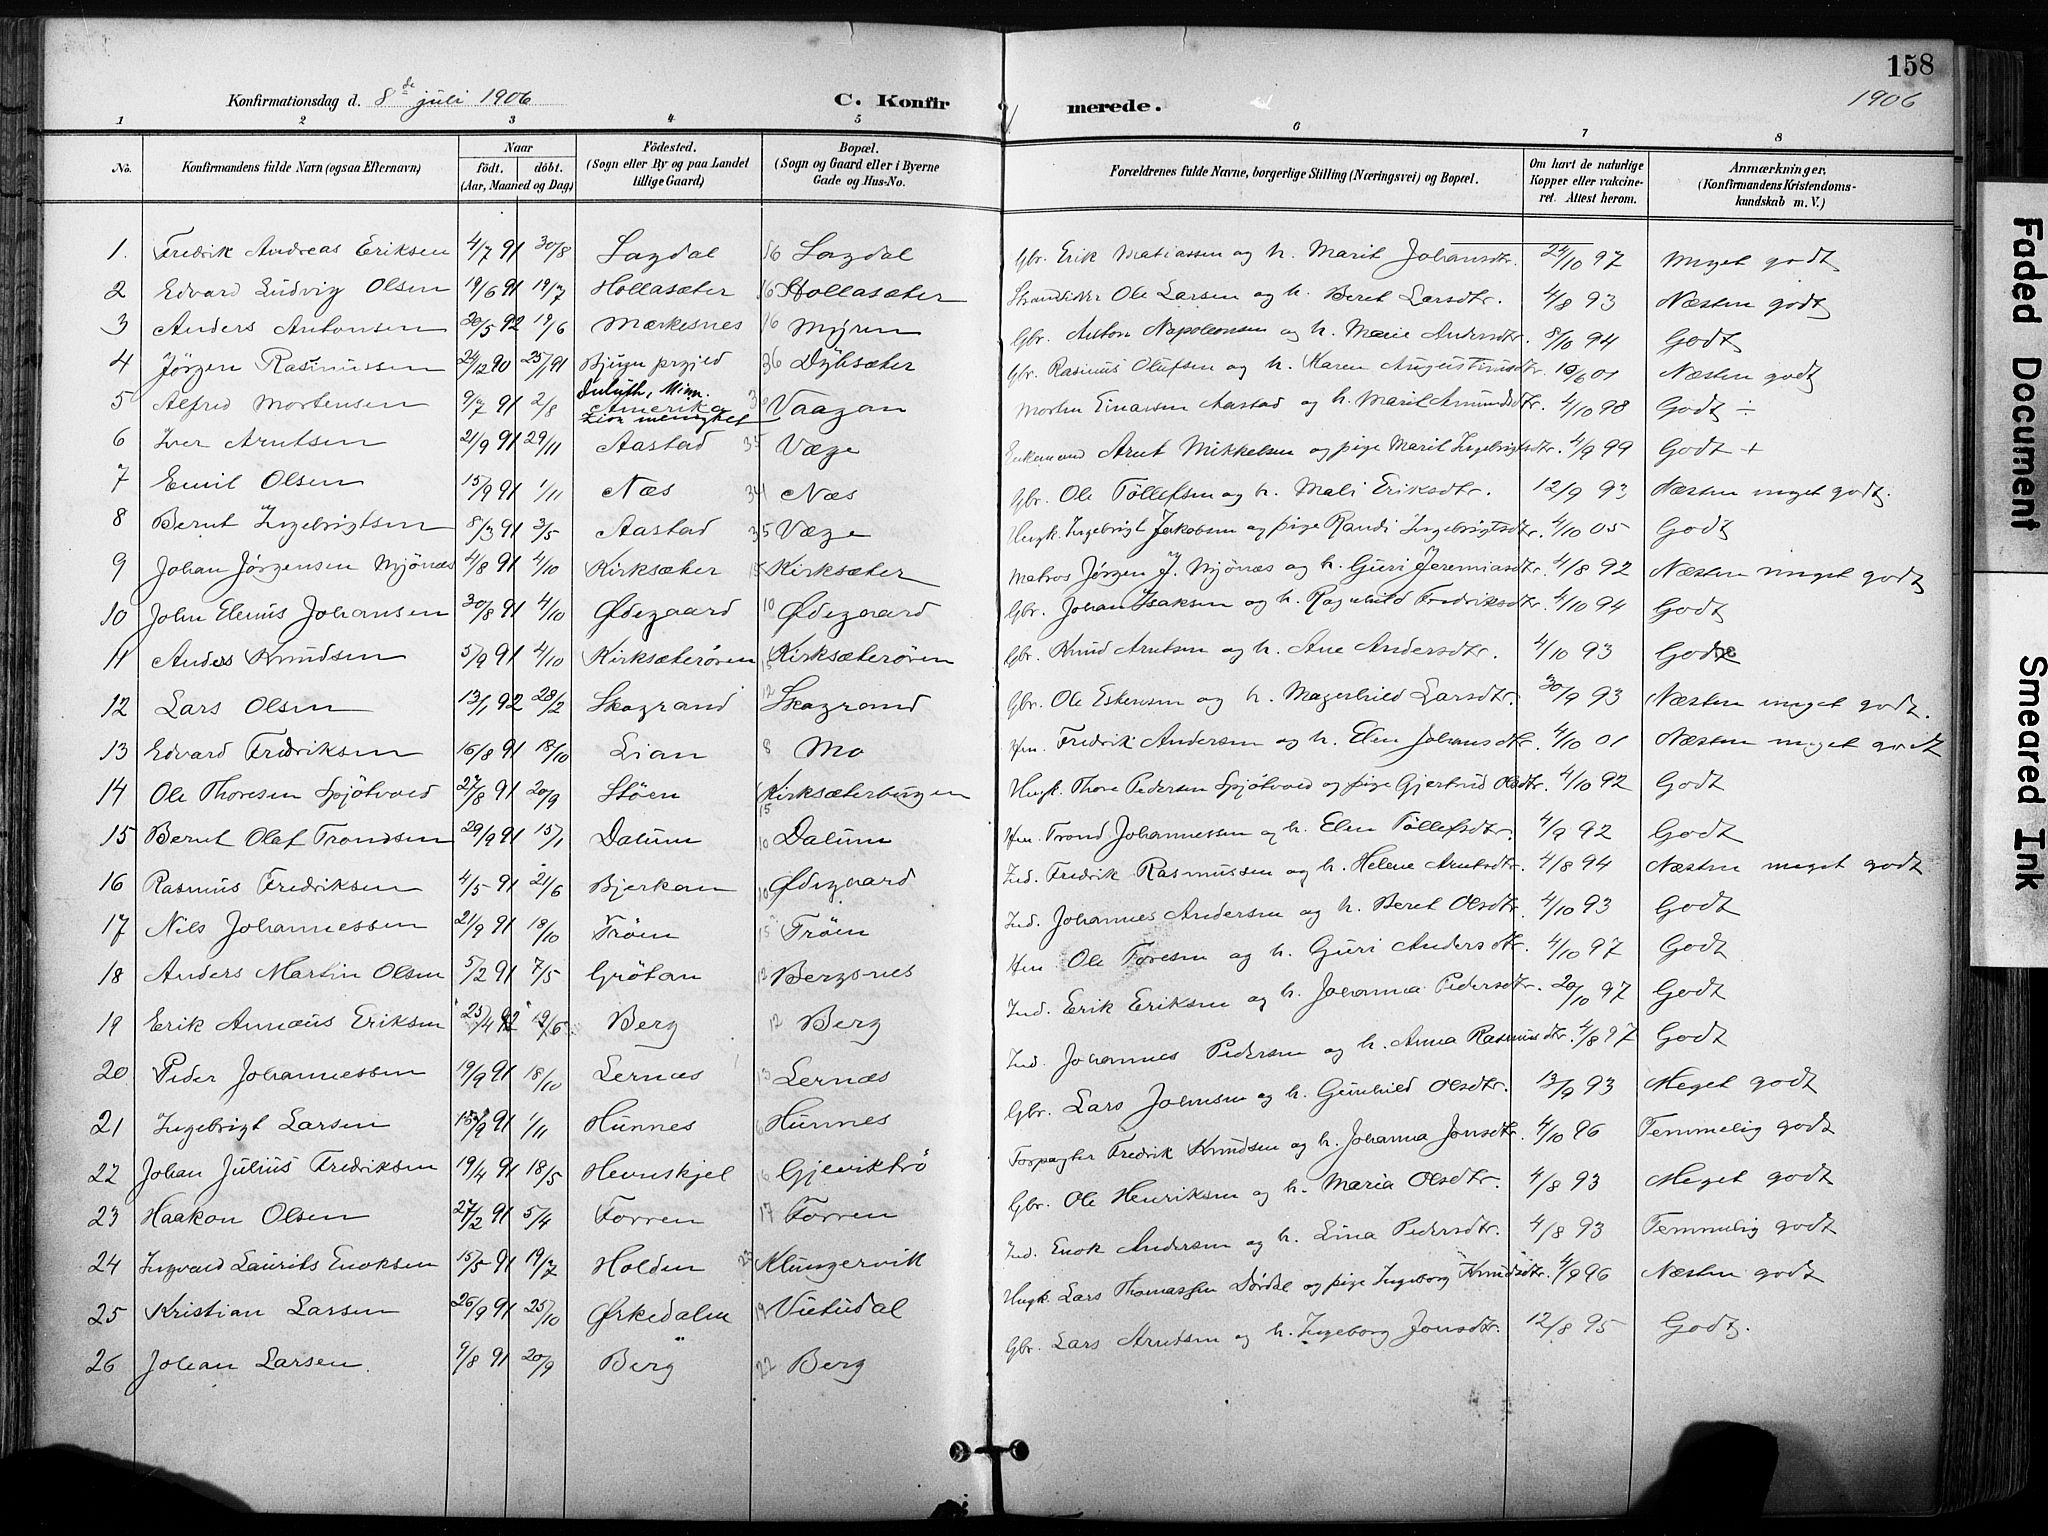 158
Konfirmationsdag d. 8de juli 1906 C. Konfirmerede. 1906
1 2 3 4 5 6 7 8
No. Konfirmandens fulde Navn (ogsaa Efternavn) Naar födt. döbt. (Aar, Maaned og Dag) Födested. (Sogn eller By og paa Landet tillige Gaard) Bopæl. (Sogn og Gaard eller i Byerne Gade og Hus-No. Forældrenes fulde Navne, borgerlige Stilling (Næringsvei) og Bopæl. Om havt de naturlige Kopper eller vakcineret. Attest herom. Anmærkninger. (Konfirmandens Kristendomskundskab m. V.)
1. Fredrik Andreas Eriksen 4/7 91 30/8 Sagdal 16 Sagdal Gbr. Erik Matiassen og h. Marit Johansdtr. 24/10 97 Meget godt
2 Edvard Ludvig Olsen 19/6 91 19/7 Hollasæter 16 Hollasæter Strandsidder Ole Larsen og h. Beret Larsdtr. 4/8 93 Næsten godt
3 Anders Antonsen 20/5 92 19/6 Mærkesnes 16 Myren Gbr. Anton Napoleonsen og h. Marie Andersdtr. 8/10 94 Godt
4 Jørgen Rasmussen 24/12 90 25/1 91 Bjugn prgjld 36 Dybsæter Gbr. Rasmus Olufsen og h. Karen Augustinusdtr. 10/6 01 Næsten godt
5 Alfred Mortensen 9/7 91 2/8 Duluth, Minn. Amerika Zion menighet Vaagan Morten Einarsen Aastad og h. Marit Amundsdtr. 4/10 98 Godt ÷
6 Iver Arntsen 21/9 91 29/11 Aastad 35 Væge Enkemand Arnt Mikkelsen og pige Marit Ingebrigtsdtr. 4/9 99 Godt +
7 Emil Olsen 15/9 91 1/11 Næs 34 Næs Gbr. Ole Tøllefsen og h. Mali Eriksdtr. 12/9 93 Næsten meget godt.
8 Bernt Ingebrigtsen 8/3 91 3/5 Aastad 35 Væge Ungk. Ingebrigt Jakobsen og pige Randi Ingebrigtsdtr. 4/10 05 Godt
9 Johan Jørgensen Mjønæs 4/8 91 4/10 Kirksæter 15 Kirksæter Matros Jørgen J. Mjønæs og h. Guri Jeremiasdtr. 4/8 92 Næsten meget godt
10 John Elenus Johansen 30/8 91 4/10 Ødegaard 10 Ødegaard Gbr. Johan Isaksen og h. Ragnhild Fredriksdtr. 4/10 94 Godt
11 Anders Knudsen 5/9 91 4/10 Kirksæterøren 15 Kirksæterøren Gbr. Knud Arntsen og h. Ane Andersdtr. 4/10 93 Godt
12 Lars Olsen 13/1 92 28/2 Skogrand 12 Skogrand Gbr. Ole Estensen og h. Magenhild Larsdtr. 30/9 93 Næsten meget godt.
13 Edvard Fredriksen 16/8 91 18/10 Lian 8 Mo Hm. Fredrik Andersen og h. Elen Johansdtr. 4/10 01 Næsten meget godt
14 Ole Thoresen Spjøtvold 27/8 91 20/9 Støen 15 Kirksæterburgen Ungk. Thore Pedersen Spjøtvold og pige Gjertrud Olsdtr. 4/10 92 Godt
15 Bernt Olaf Trondsen 29/9 91 15/1 Dalum 10 Dalum Hm. Trond Johannessen og h. Elen Tøllefsdtr. 4/9 92 Godt
16 Rasmus Fredriksen 4/5 91 21/6 Bjerkan 10 Ødegaard Ind. Fredrik Rasmussen og h. Helene Arntsdtr. 4/8 94 Næsten meget godt
17 Nils Johannessen 21/9 91 18/10 Trøen 15 Trøen Ind. Johannes Andersen og h. Beret Olsdtr. 4/10 93 Godt
18 Anders Martin Olsen 5/2 91 7/5 Grøtan 12 Bergsnes Hm Ole Toresen og h. Guri Andersdtr. 4/10 97 Godt
19 Erik Annæus Eriksen 25/4 92 19/6 Berg 12 Berg Ind. Erik Eriksen og h. Johanna Pedersdtr. 20/10 97 Godt
20 Peder Johannessen 19/9 91 18/10 Lernæs 13 Lernæs Ind. Johannes Pedersen og h. Anna Rasmusdtr. 4/8 97 Godt
21 Ingebrigt Larsen 15/9 91 1/11 Hunnes 6 Hunnes Gbr. Lars Johnsen og h. Gunhild Olsdtr. 13/9 93 Meget godt
22 Johan Julius Fredriksen 19/4 91 18/5 Hevnskjel 16 Gjeviktrø Forpagter Fredrik Knudsen og h. Johanna Jonsdtr. 4/10 96 Temmelig godt
23 Haakon Olsen 27/2 91 5/4 Forren 17 Forren Gbr. Ole Henriksen og h. Maria Olsdtr. 4/8 93 Meget godt
24 Ingvald Laurits Enoksen 15/5 91 19/7 Holden 23 Klungervik Ind. Enok Andersen og h. Lina Pedersdtr. 4/8 93 Temmelig godt
25 Kristian Larsen 26/9 91 25/10 Ørkedalen 19 Vutudal Ungk. Lars Thomassen Dørdal og pige Ingeborg Knudsdtr. 4/9 96 Næsten godt
26 Johan Larsen. 9/8 91 20/9 Berg 22 Berg Gbr. Lars Arntsen og h. Ingeborg Jonsdtr. 12/8 95 Godt.
Faded Document
Smeared Ink